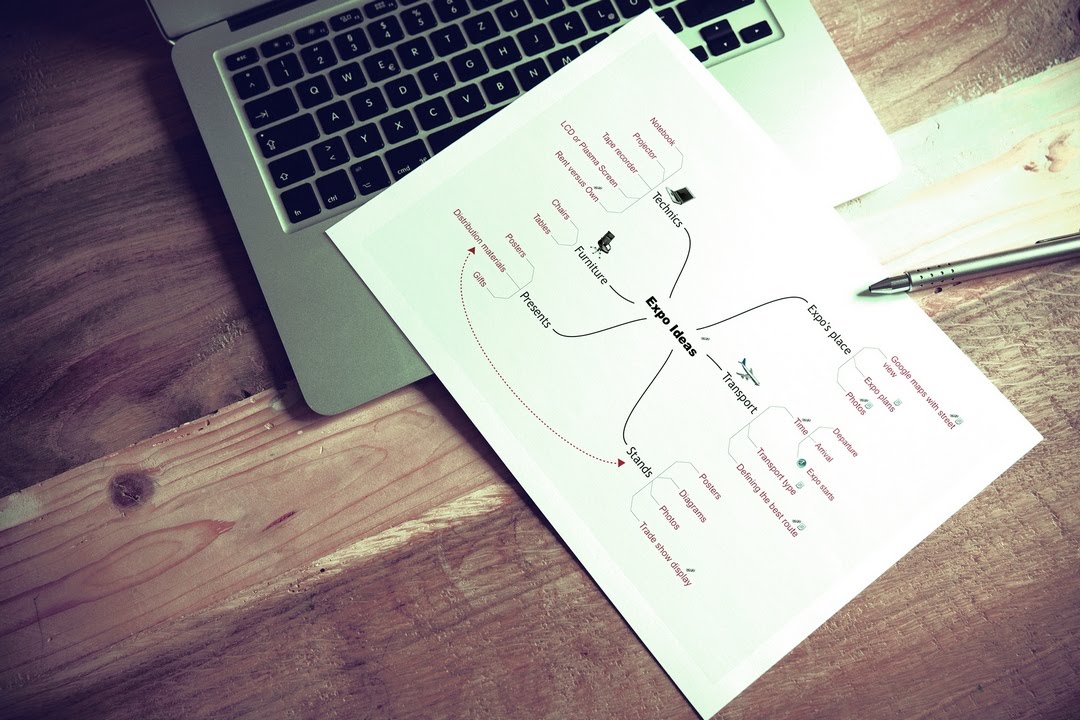 esc
! 1
" 2
§ 3
$ 4
% 5
& 6
Q
W
E €
R
T
Z
U
A
S
D
F
G
H
J
K
L
> <
Y
X
C
V
B
N
fn
ctrl
cmd
Expo Ideas
Technics
Notebook
Projector
Tape recorder
LCD or Plasma Screen
Rent versus Own
Furniture
Chairs
Tables
Presents
Posters
Distribution materials
Gifts
Expo's place
Google maps with street
view
Expo plans
Photos
Transport
Time
Departure
Arrival
Expo starts
Transport type
Defining the best route
Stands
Posters
Diagrams
Photos
Trade show display